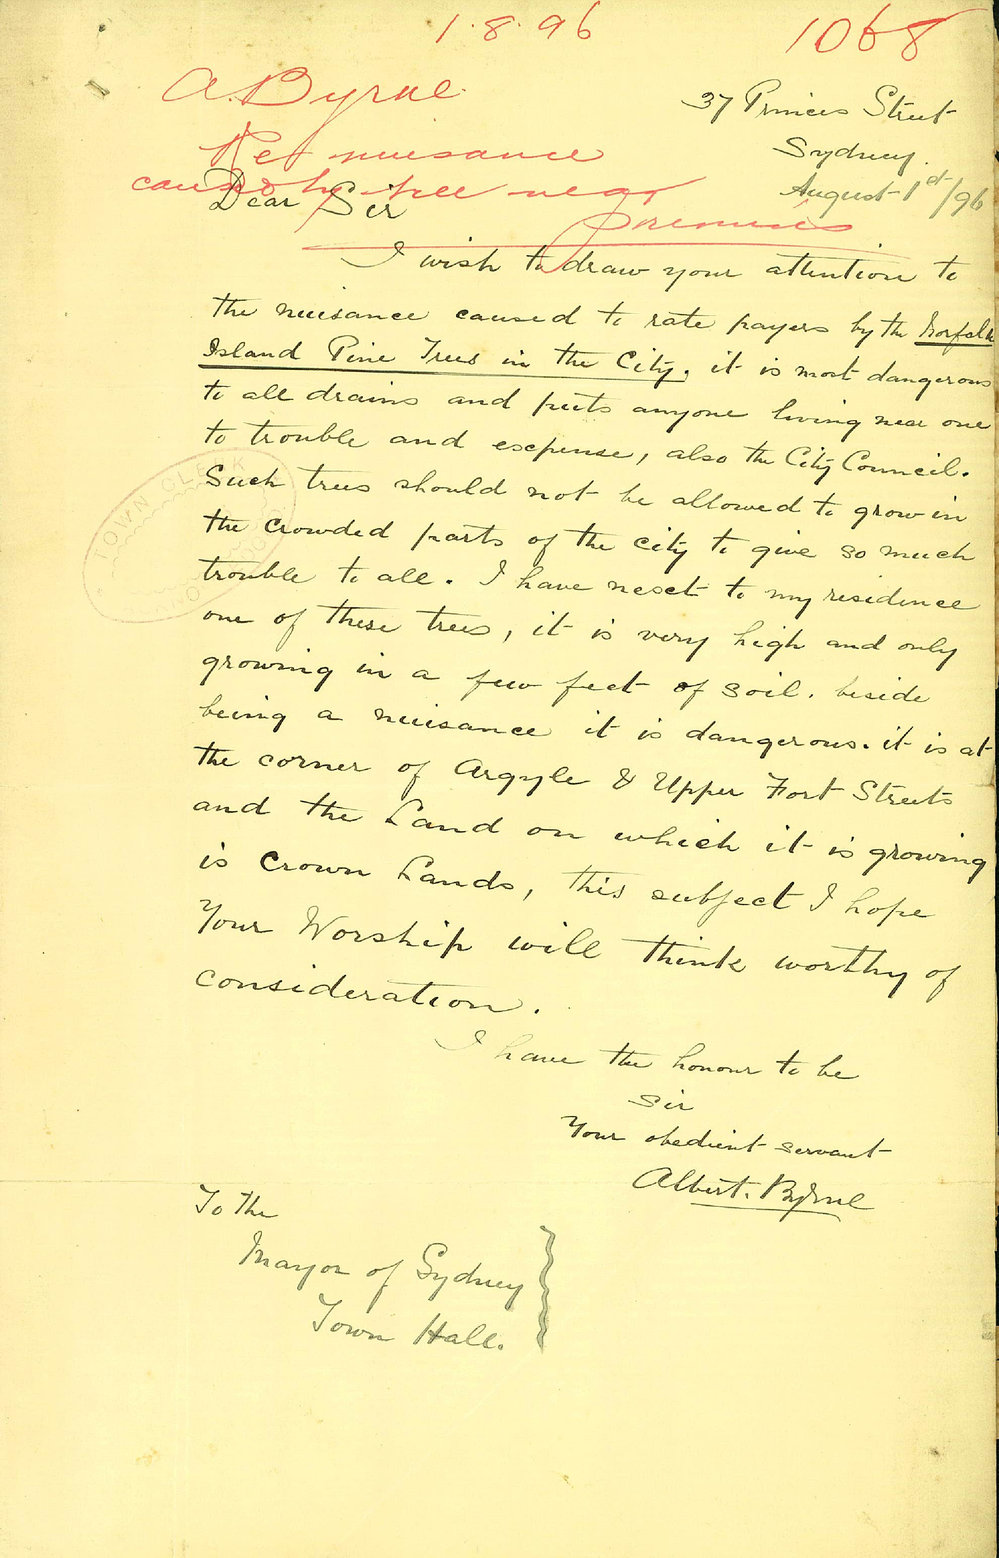 1.8.96
1068
A. Byrne
Re nuisance
caused by tree near
premises
37 Princes Street
Sydney.
August 1st/96
Dear Sir
I wish to draw your attention to
the nuisance caused to rate payers by the Norfolk
Island Pine Trees in the City. it is most dangerous
to all drains and puts anyone living near one
to trouble and expense, also the City Council.
Such trees should not be allowed to grow in
the crowded parts of the city to give so much
trouble to all. I have next to my residence
one of these trees, it is very high and only
growing in a few feet of soil. beside
being a nuisance it is dangerous. it is at
the corner of Argyle & Upper Fort Streets
and the Land on which it is growing
is Crown Lands, this subject I hope
Your Worship will think worthy of
consideration.
I have the honour to be
Sir
Your obedient servant
Albert. Byrne
To the
Mayor of Sydney
Town Hall.
TOWN CLERK